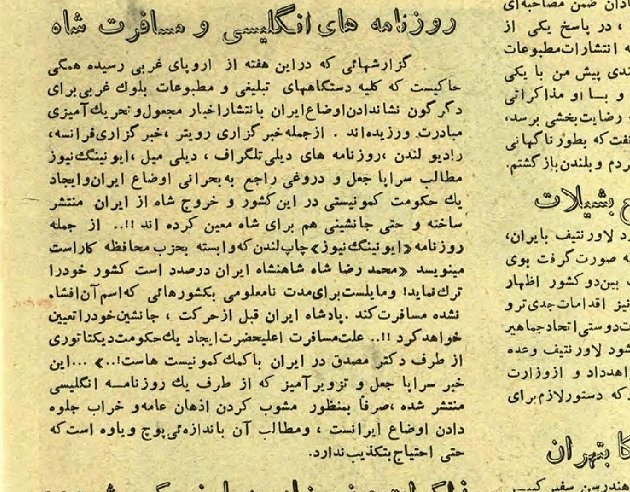 روزنامه های انگلیسی و مسافرت شاه
گزارشهائی که دراین هفته از اروپای غربی رسیده همگی
حاکیست که کلیه دستگاههای تبلیغی و مطبوعات بلوك غربی برای
دگرگون نشاندادن اوضاع ایران با انتشار اخبار مجعول و تحریك آمیزی
مبادرت ورزیده اند . ازجمله خبرگزاری رویتر ، خبرگزاری فرانسه،
رادیو لندن ، روزنامه های دیلی تلگراف ، دیلی میل ، ایونینگ نیوز
مطالب سراپا جعل و دروغی راجع به بحرانی اوضاع ایران و ایجاد
یك حکومت کمونیستی در این کشور و خروج شاه از ایران منتشر
ساخته و حتی جانشینی هم برای شاه معین کرده اند !!.. از جمله
روزنامه «ایونینگ نیوز» چاپ لندن که وابسته بحزب محافظه کار است
مینویسد «محمد رضا شاه شاهنشاه ایران درصدد است کشور خودرا
ترك نماید! و مایلست برای مدت نامعلومی بکشورهائی که اسم آن افشاء
نشده مسافرت کند . پادشاه ایران قبل از حرکت ، جانشین خود را تعیین
خواهد کرد !!.. علت مسافرت اعلیحضرت ایجاد یك حکومت دیکتاتوری
از طرف دکتر مصدق در ایران با کمك کمونیست هاست!..» ... این
خبر سراپا جعل و تزویرآمیز که از طرف یك روزنامه انگلیسی
منتشر شده ، صرفاً بمنظور مشوب کردن اذهان عامه و خراب جلوه
دادن اوضاع ایرانست ، ومطالب آن باندازه ئی پوچ و یاوه است که
حتی احتیاج بتکذیب ندارد.
ادان ضمن مصاحبه ای
، در پاسخ یکی از
ه انتشارات مطبوعات
ندی پیش من با یکی
و بسا او مذاکراتی
رضایت بخشی برسد،
فت که بطور ناگهانی
ردم و بلندن باز گشتم.
ع بشیلات
د لاور نتیف بایران،
ه صورت گرفت بوی
بین دو کشور اظهار
نیز اقدامات جدی تر و
ت دوستی اتحاد جماهیر
شود لاور نتیف وعده
اهدداد و از وزارت
که دستور لازم برای
کا بتهران
هندرسن سفیر کبیر